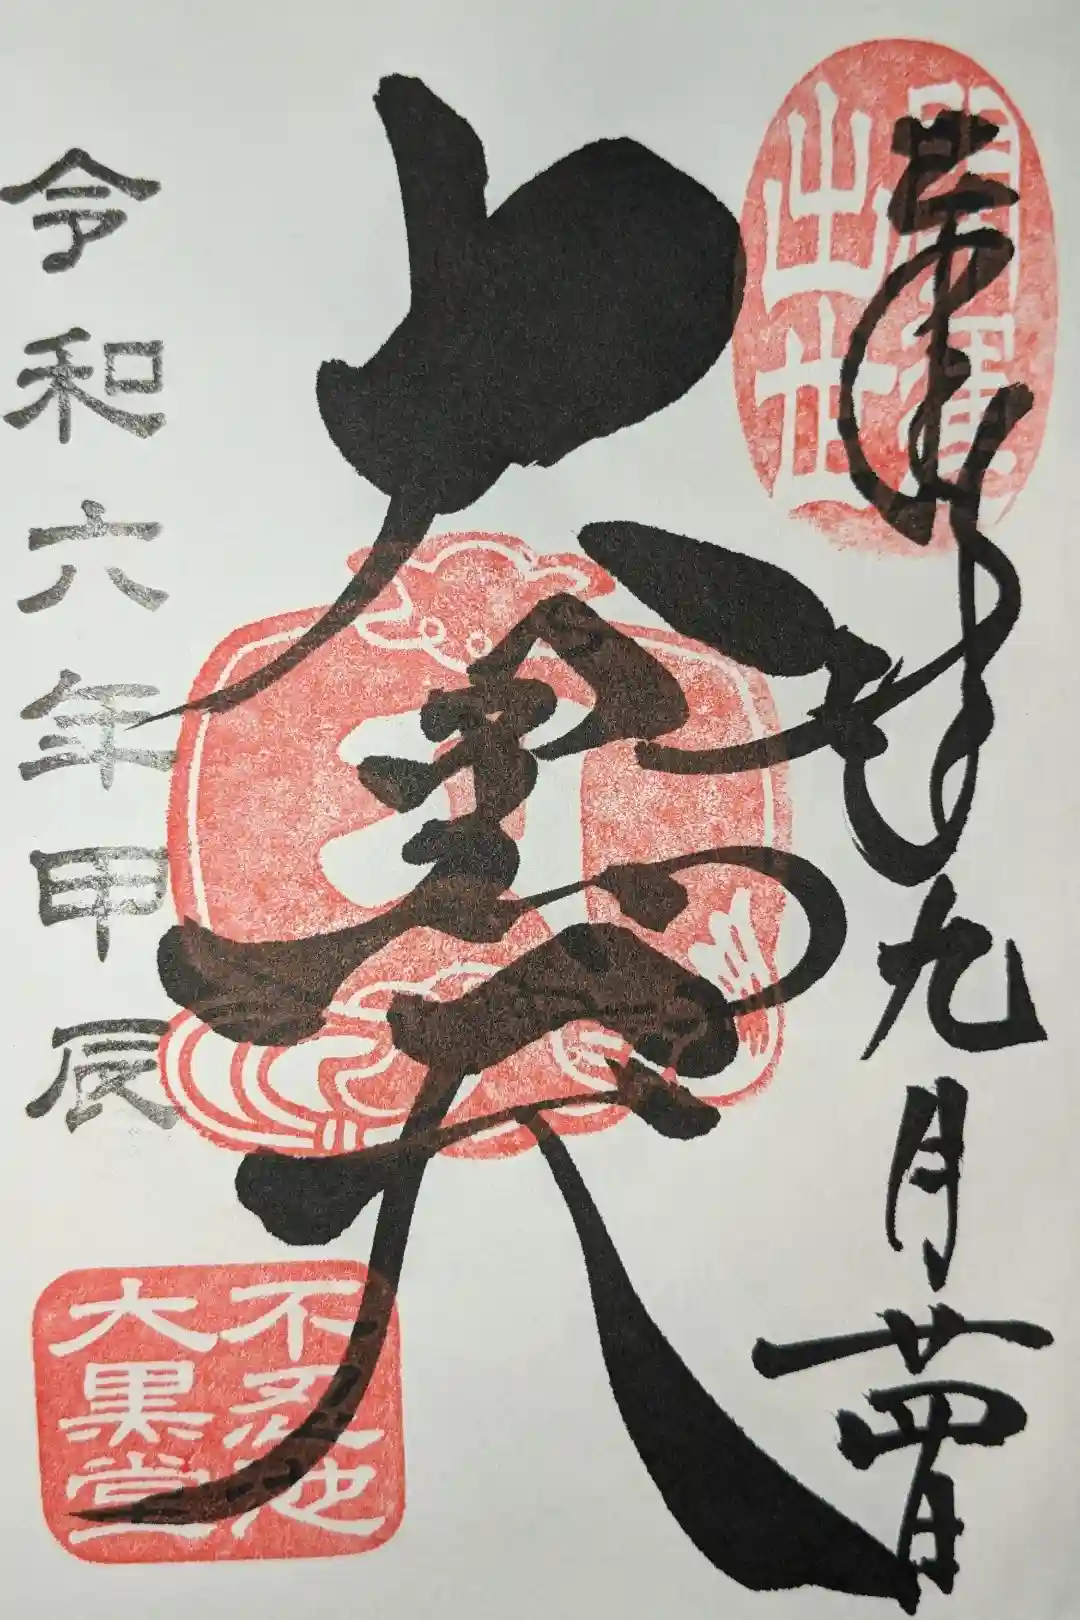 開運
出世
奉拝
九月廿四日
大黒天
令和六年甲辰
不忍池
大黒堂